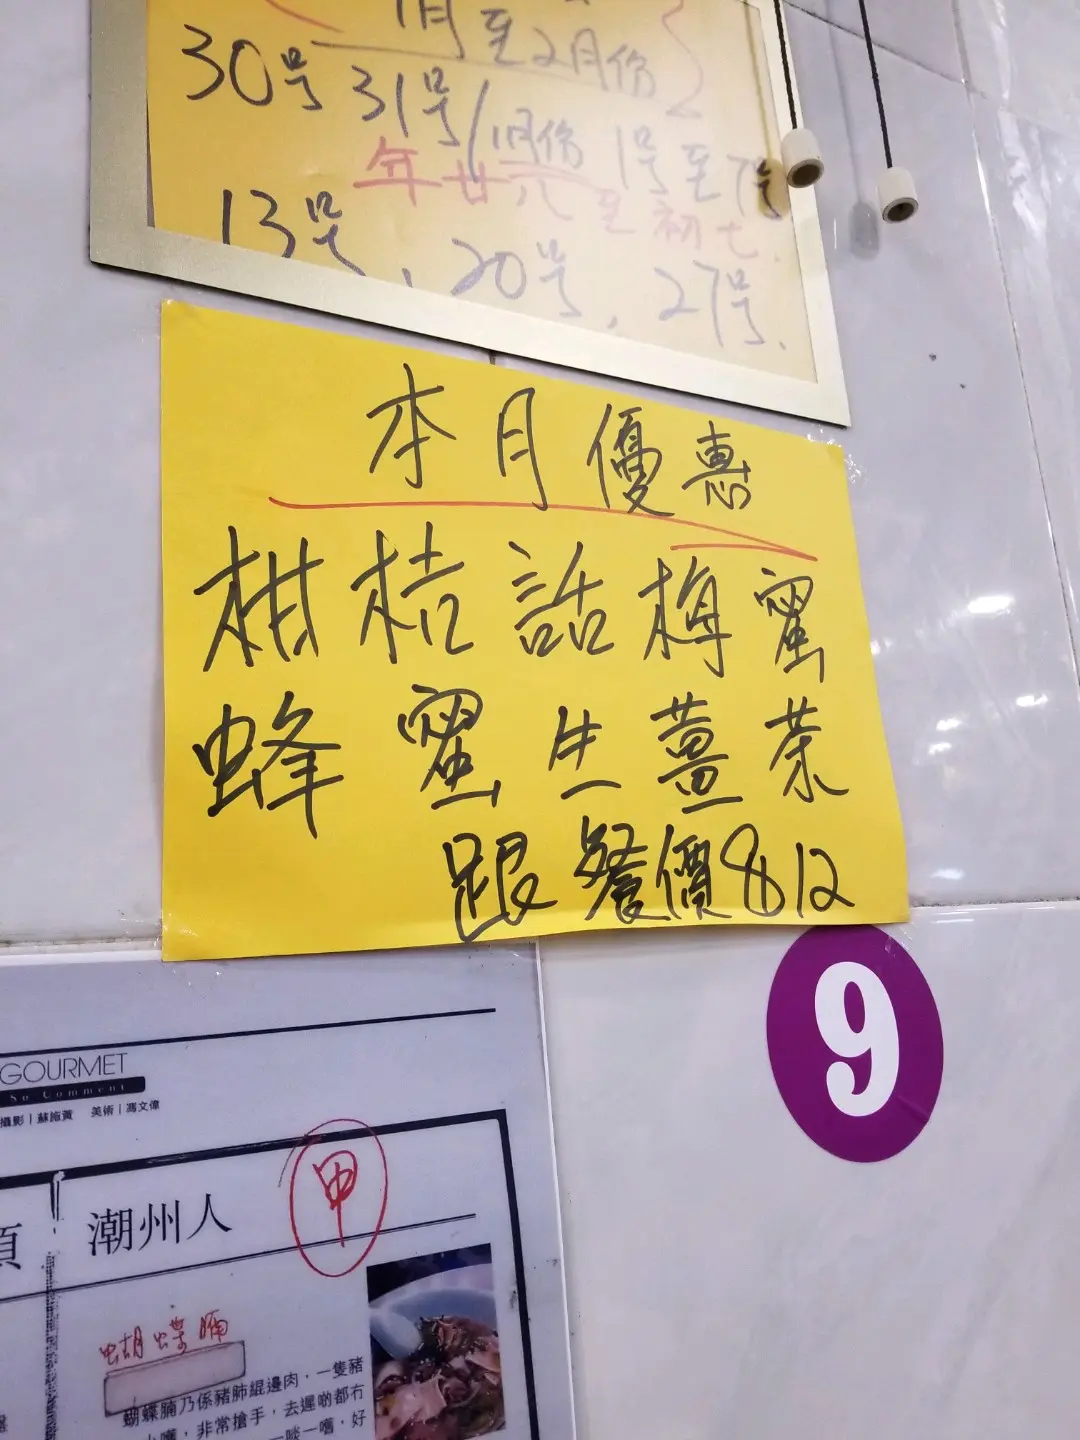 1月至2月份
30号 31号/1月份 1号至7号
年廿六至初七.
13号, 20号, 27号.
本月優惠
柑桔話梅蜜
蜂蜜生薑茶
跟餐價812
9
GOURMET
So Comment
攝影|蘇施黃 美術|馮文偉
潮州人
甲
蝴蝶腩
蝴蝶腩乃係豬肺綑邊肉，一隻豬
，非常搶手，去遲啲都冇
一啖一嚐，好